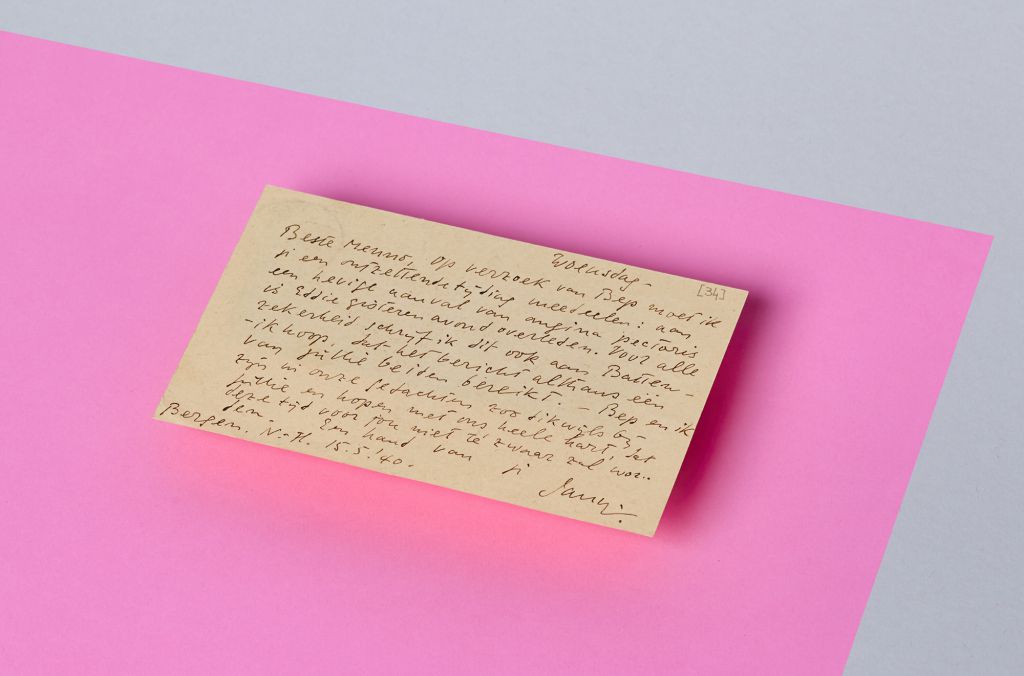 Woensdag -
[34]
Beste Menno, op verzoek van Bep moet ik
je een ontzettende tijding meedeelen: aan
een hevige aanval van angina pectoris
is Eddie gisteren avond overleden. Voor alle
zekerheid schrijf ik dit ook aan Batten -
- ik hoop, dat het bericht althans één
van jullie beiden bereikt. - Bep en ik
zijn in onze gedachten zoo dikwijls bij
jullie en hopen met ons heele hart, dat
deze tijd voor jou niet te zwaar zal wor..
den Een hand van je
Bergen. N.-H. 15.5.'40.